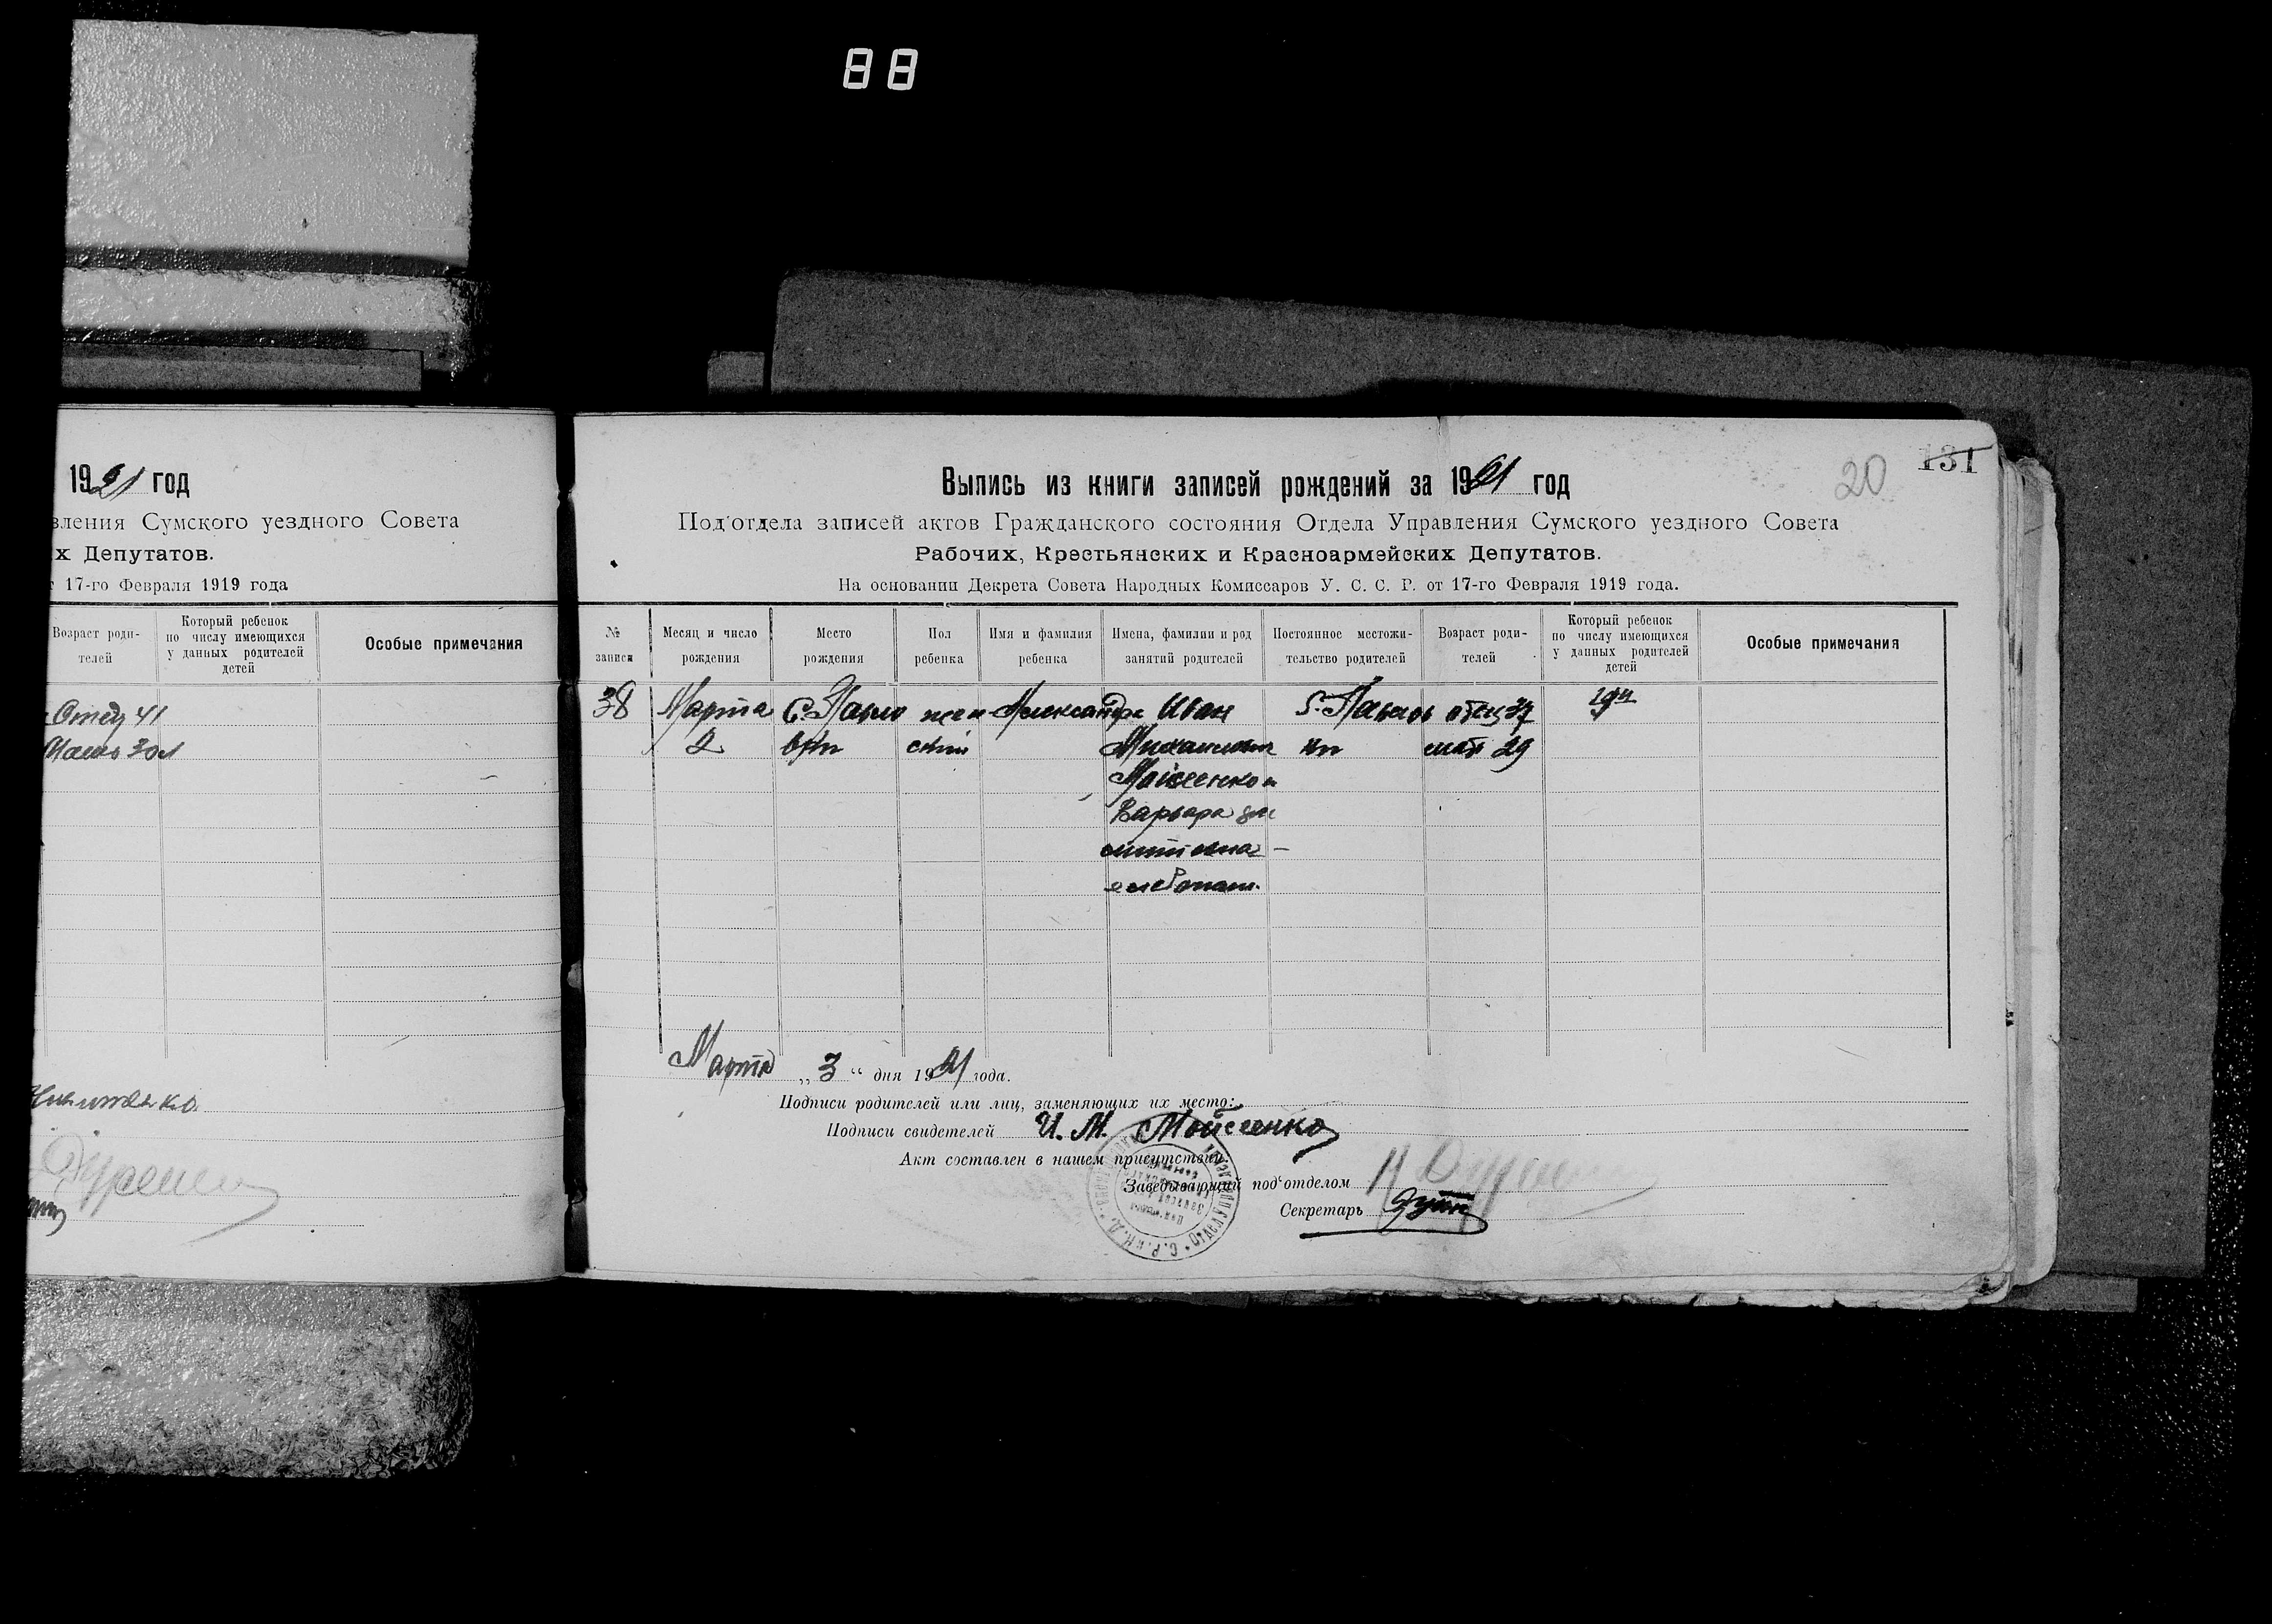 88
1921 год
вления Сумского уездного Совета
х Депутатов.
т 17-го Февраля 1919 года
Возраст роди-
телей
Который ребенок
по числу имеющихся
у данных родителей
детей
Особые примечания
Отец 41
Мать 30 л
20
131
Выпись из книги записей рождений за 1921 год
Под'отдела записей актов Гражданского состояния Отдела Управления Сумского уездного Совета
Рабочих, Крестьянских и Красноармейских Депутатов.
На основании Декрета Совета Народных Комиссаров У. С. С. Р. от 17-го Февраля 1919 года.
№
записи
Месяц и число
рождения
Место
рождения
Пол
ребенка
Имя и фамилия
ребенка
Имена, фамилии и род
занятий родителей
Постоянное местожи-
тельство родителей
Возраст роди-
телей
Который ребенок
по числу имеющихся
у данных родителей
детей
Особые примечания
38
Марта
2
С. Павло
вки
жен
ский
Александра
Иван
Михайлович
Мойсеенко и
Варвара Ди
митовна
хлебопаш.
С. Павлов
ки
отец 37
мать 29
Марта „3“ дня 1921 года.
Подписи родителей или лиц, заменяющих их место:
Подписи свидетелей И. М. Мойсеенко
Акт составлен в нашем присутствии:
Заведывающий под'отделом
Секретарь